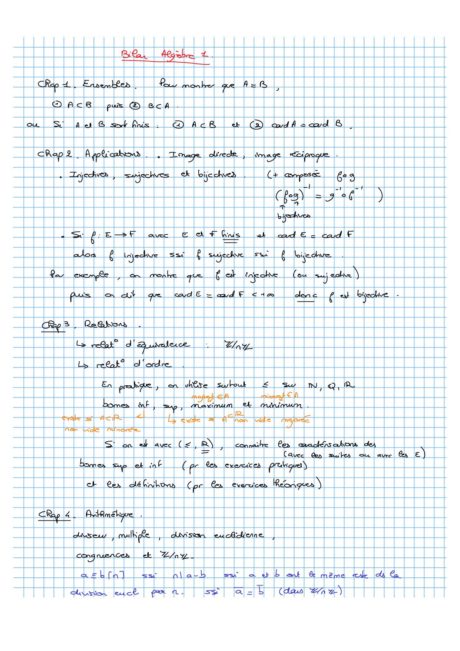 Bilan Algèbre 1.
Chap 1. Ensembles. Pour montrer que A = B,
① A ⊂ B puis ② B ⊂ A
ou Si A et B sont finis. ① A ⊂ B et ② card A = card B.
Chap 2. Applications. • Image directe, image réciproque
• Injectives, surjectives et bijectives. (+ composée f∘g
(f∘g)⁻¹ = g⁻¹∘f⁻¹ )
↑ ↑
bijectives
• Si f: E → F avec E et F finis et card E = card F
alors f injective ssi f surjective ssi f bijective
Par exemple, on montre que f est injective (ou surjective)
puis on dit que card E = card F < +∞ donc f est bijective.
Chap 3. Relations.
↳ relat° d'équivalence : ℤ/nℤ
↳ relat° d'ordre
En pratique, on utilise surtout ≤ sur ℕ, ℚ, ℝ
majorant ∈ A minorant ∈ A
bornes inf, sup, maximum et minimum.
existe si A⊂ℝ ↳ existe si A⊂ℝ non vide majorée
non vide minorée
Si on est avec (≤, ℝ), connaître les caractérisations des
(avec les suites ou avec les ε)
bornes sup et inf (pr les exercices pratiques)
et les définitions (pr les exercices théoriques)
Chap 4. Arithmétique.
diviseur, multiple, division euclidienne,
congruences et ℤ/nℤ.
a ≡ b [n] ssi n | a-b ssi a et b ont le même reste de la
division eucl. par n. ssi a̅ = b̅ (dans ℤ/nℤ)